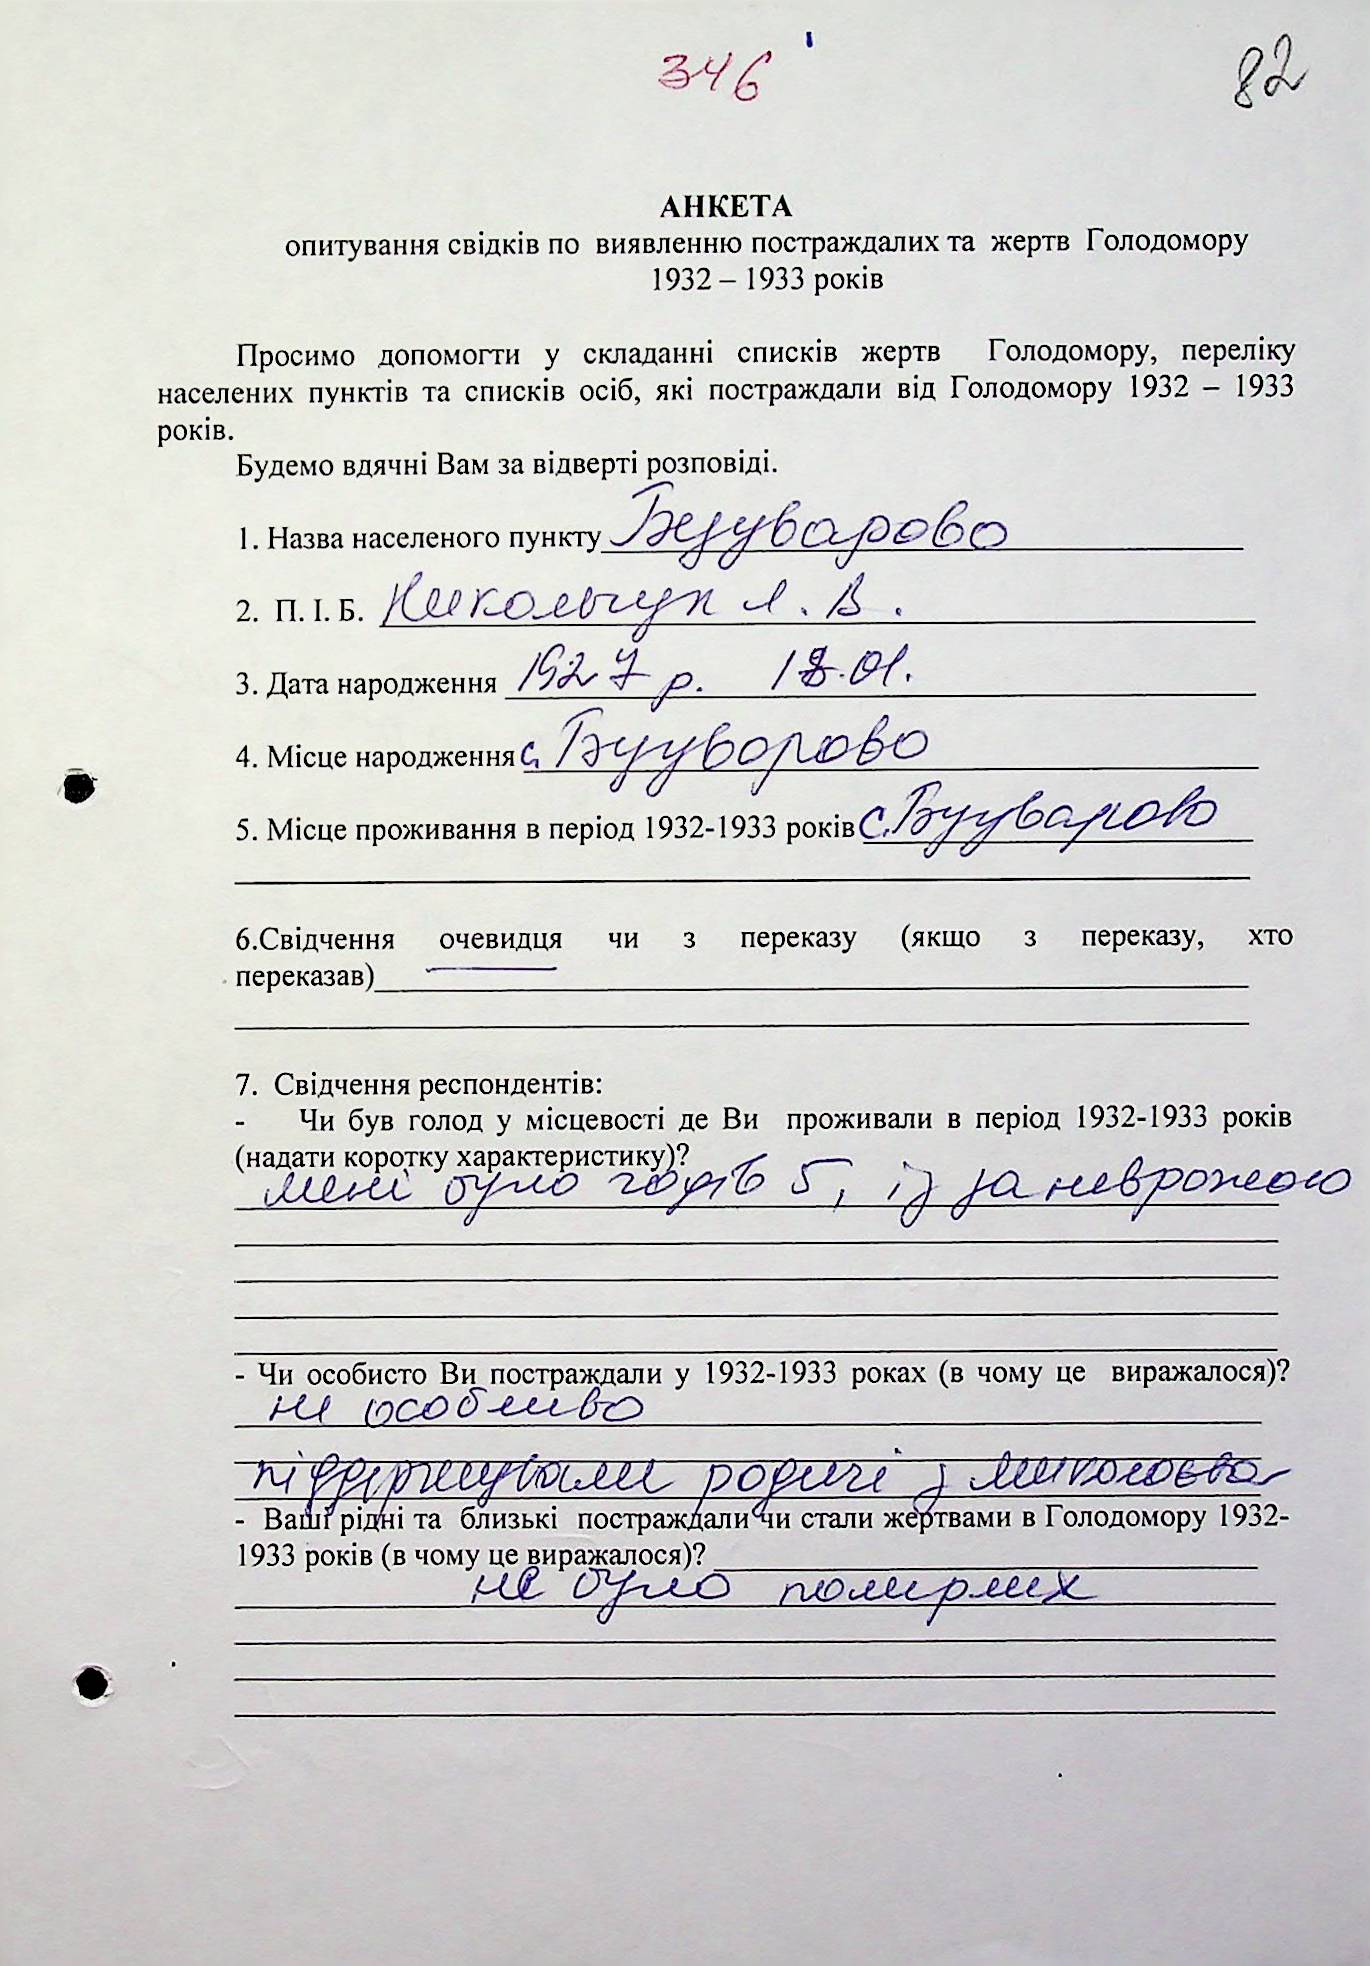 346
82
АНКЕТА
опитування свідків по виявленню постраждалих та жертв Голодомору
1932 – 1933 років
Просимо допомогти у складанні списків жертв Голодомору, переліку
населених пунктів та списків осіб, які постраждали від Голодомору 1932 – 1933
років.
Будемо вдячні Вам за відверті розповіді.
1. Назва населеного пункту
2. П. І. Б. Никольчук Л. В.
3. Дата народження 1927 р. 18.01.
4. Місце народження с.
5. Місце проживання в період 1932-1933 років с.
6.Свідчення очевидця чи з переказу (якщо з переказу, хто
переказав)
7. Свідчення респондентів:
- Чи був голод у місцевості де Ви проживали в період 1932-1933 років
(надати коротку характеристику)?
мені було годів 5, із за неврожаю
- Чи особисто Ви постраждали у 1932-1933 роках (в чому це виражалося)?
не особливо
піддержували родичі з
- Ваші рідні та близькі постраждали чи стали жертвами в Голодомору 1932-
1933 років (в чому це виражалося)?
не було померлих